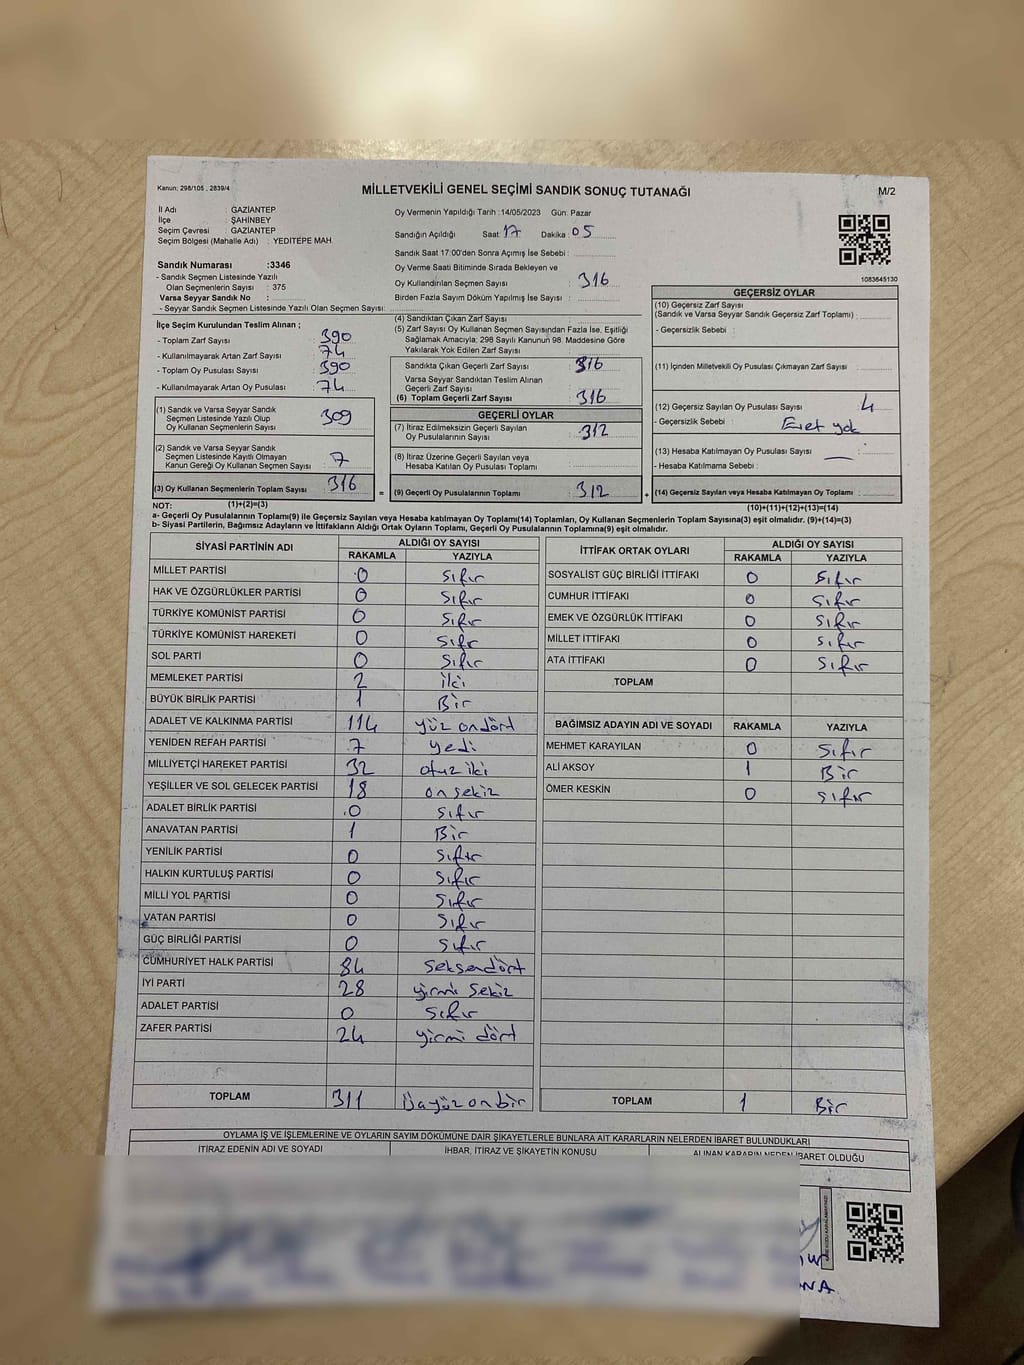 Kanun; 298/105 , 2839/4
MİLLETVEKİLİ GENEL SEÇİMİ SANDIK SONUÇ TUTANAĞI
M/2
İl Adı : GAZİANTEP
İlçe : ŞAHİNBEY
Seçim Çevresi : GAZİANTEP
Seçim Bölgesi (Mahalle Adı) : YEDİTEPE MAH.
Sandık Numarası :3346
- Sandık Seçmen Listesinde Yazılı
Olan Seçmenlerin Sayısı : 375
Varsa Seyyar Sandık No :
- Seyyar Sandık Seçmen Listesinde Yazılı Olan Seçmen Sayısı:
Oy Vermenin Yapıldığı Tarih :14/05/2023 Gün: Pazar
Sandığın Açıldığı Saat: 17 Dakika: 05
Sandık Saat 17:00'den Sonra Açımış İse Sebebi :
Oy Verme Saati Bitiminde Sırada Bekleyen ve
Oy Kullandırılan Seçmen Sayısı : 316
Birden Fazla Sayım Döküm Yapılmış İse Sayısı :
1083645130
İlçe Seçim Kurulundan Teslim Alınan ;
- Toplam Zarf Sayısı : 390
- Kullanılmayarak Artan Zarf Sayısı : 74
- Toplam Oy Pusulası Sayısı : 390
- Kullanılmayarak Artan Oy Pusulası : 74
(1) Sandık ve Varsa Seyyar Sandık
Seçmen Listesinde Yazılı Olup
Oy Kullanan Seçmenlerin Sayısı : 309
(2) Sandık ve Varsa Seyyar Sandık
Seçmen Listesinde Kayıtlı Olmayan
Kanun Gereği Oy Kullanan Seçmen Sayısı : 7
(3) Oy Kullanan Seçmenlerin Toplam Sayısı : 316
(1)+(2)=(3)
(4) Sandıktan Çıkan Zarf Sayısı :
(5) Zarf Sayısı Oy Kullanan Seçmen Sayısından Fazla İse, Eşitliği
Sağlamak Amacıyla; 298 Sayılı Kanunun 98. Maddesine Göre
Yakılarak Yok Edilen Zarf Sayısı :
Sandıkta Çıkan Geçerli Zarf Sayısı : 316
Varsa Seyyar Sandıktan Teslim Alınan
Geçerli Zarf Sayısı :
(6) Toplam Geçerli Zarf Sayısı : 316
GEÇERLİ OYLAR
(7) İtiraz Edilmeksizin Geçerli Sayılan
Oy Pusulalarının Sayısı : 312
(8) İtiraz Üzerine Geçerli Sayılan veya
Hesaba Katılan Oy Pusulası Toplamı :
= (9) Geçerli Oy Pusulalarının Toplamı : 312 +
GEÇERSİZ OYLAR
(10) Geçersiz Zarf Sayısı
(Sandık ve Varsa Seyyar Sandık Geçersiz Zarf Toplamı) :
- Geçersizlik Sebebi :
(11) İçinden Milletvekili Oy Pusulası Çıkmayan Zarf Sayısı :
(12) Geçersiz Sayılan Oy Pusulası Sayısı : 4
- Geçersizlik Sebebi : Evet yok
(13) Hesaba Katılmayan Oy Pusulası Sayısı : —
- Hesaba Katılmama Sebebi :
(14) Geçersiz Sayılan veya Hesaba Katılmayan Oy Toplamı :
(10)+(11)+(12)+(13)=(14)
NOT:
a- Geçerli Oy Pusulalarının Toplamı(9) ile Geçersiz Sayılan veya Hesaba katılmayan Oy Toplamı(14) Toplamları, Oy Kullanan Seçmenlerin Toplam Sayısına(3) eşit olmalıdır. (9)+(14)=(3)
b- Siyasi Partilerin, Bağımsız Adayların ve İttifakların Aldığı Ortak Oyların Toplamı, Geçerli Oy Pusulalarının Toplamına(9) eşit olmalıdır.
SİYASİ PARTİNİN ADI ALDIĞI OY SAYISI
RAKAMLA YAZIYLA
MİLLET PARTİSİ 0 Sıfır
HAK VE ÖZGÜRLÜKLER PARTİSİ 0 Sıfır
TÜRKİYE KOMÜNİST PARTİSİ 0 Sıfır
TÜRKİYE KOMÜNİST HAREKETİ 0 Sıfır
SOL PARTİ 0 Sıfır
MEMLEKET PARTİSİ 2 iki
BÜYÜK BİRLİK PARTİSİ 1 Bir
ADALET VE KALKINMA PARTİSİ 114 yüz ondört
YENİDEN REFAH PARTİSİ 7 yedi
MİLLİYETÇİ HAREKET PARTİSİ 32 otuz iki
YEŞİLLER VE SOL GELECEK PARTİSİ 18 on sekiz
ADALET BİRLİK PARTİSİ 0 Sıfır
ANAVATAN PARTİSİ 1 Bir
YENİLİK PARTİSİ 0 Sıfır
HALKIN KURTULUŞ PARTİSİ 0 Sıfır
MİLLİ YOL PARTİSİ 0 Sıfır
VATAN PARTİSİ 0 Sıfır
GÜÇ BİRLİĞİ PARTİSİ 0 Sıfır
CUMHURİYET HALK PARTİSİ 84 Seksendört
İYİ PARTİ 28 yirmi Sekiz
ADALET PARTİSİ 0 Sıfır
ZAFER PARTİSİ 24 yirmi dört
TOPLAM 311 Üçyüz on bir
İTTİFAK ORTAK OYLARI ALDIĞI OY SAYISI
RAKAMLA YAZIYLA
SOSYALİST GÜÇ BİRLİĞİ İTTİFAKI 0 Sıfır
CUMHUR İTTİFAKI 0 Sıfır
EMEK VE ÖZGÜRLÜK İTTİFAKI 0 Sıfır
MİLLET İTTİFAKI 0 Sıfır
ATA İTTİFAKI 0 Sıfır
TOPLAM
BAĞIMSIZ ADAYIN ADI VE SOYADI RAKAMLA YAZIYLA
MEHMET KARAYILAN 0 Sıfır
ALİ AKSOY 1 Bir
ÖMER KESKİN 0 Sıfır
TOPLAM 1 Bir
OYLAMA İŞ VE İŞLEMLERİNE VE OYLARIN SAYIM DÖKÜMÜNE DAİR ŞİKAYETLERLE BUNLARA AİT KARARLARIN NELERDEN İBARET BULUNDUKLARI
İTİRAZ EDENİN ADI VE SOYADI İHBAR, İTİRAZ VE ŞİKAYETİN KONUSU ALINAN KARARIN NEDEN İBARET OLDUĞU